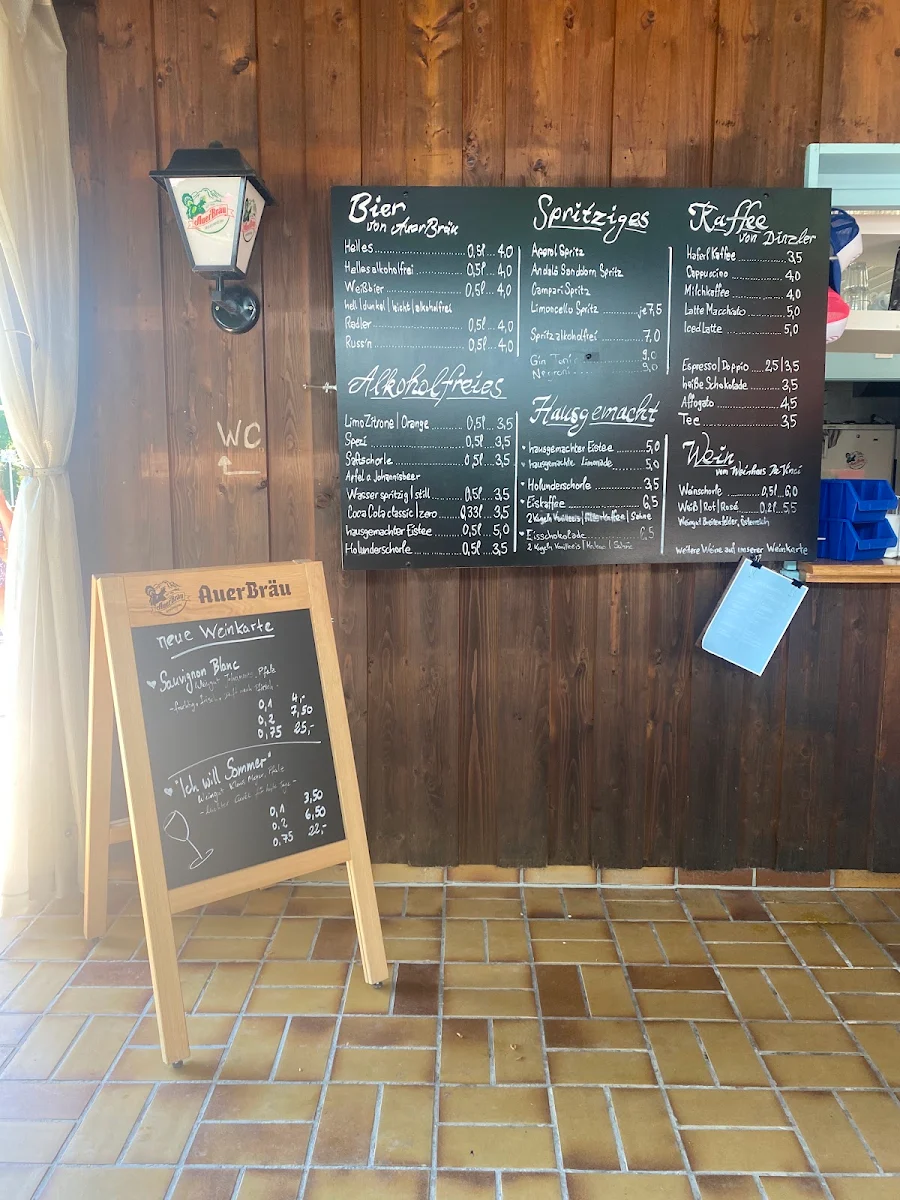 AuerBräu
WC
Bier
von AuerBräu
Helles 0,5l... 4,0
Helles alkoholfrei 0,5l... 4,0
Weißbier 0,5l... 4,0
hell | dunkel | leicht | alkoholfrei
Radler 0,5l... 4,0
Russ'n 0,5l... 4,0
Alkoholfreies
Limo Zitrone | Orange 0,5l... 3,5
Spezi 0,5l... 3,5
Saftschorle 0,5l... 3,5
Apfel o Johannisbeer
Wasser spritzig | still 0,5l... 3,5
Coca Cola classic | zero 0,33l... 3,5
hausgemachter Eistee 0,5l... 5,0
Holunderschorle 0,5l... 3,5
Spritziges
Aperol Spritz
Andalö Sanddorn Spritz
Campari Spritz
Limoncello Spritz je 7,5
Spritz alkoholfrei 7,0
Gin Tonic 9,0
Negroni 9,0
Hausgemacht
hausgemachter Eistee 5,0
hausgemachte Limonade 5,0
Holunderschorle 3,5
Eiskaffee 6,5
2 Kugeln Vanilleeis | Filterkaffee | Sahne
Eisschokolade 6,5
2 Kugeln Vanilleeis | Kakao | Sahne
Kaffee
von Dinzler
Haferl Kaffee 3,5
Cappuccino 4,0
Milchkaffee 4,0
Latte Macchiato 5,0
Iced Latte 5,0
Espresso | Doppio 2,5 | 3,5
heiße Schokolade 3,5
Affogato 4,5
Tee 3,5
Wein
vom Weinhaus Da Vinci
Weinschorle 0,5l... 6,0
Weiß | Rot | Rosé 0,2l... 5,5
Weingut Breitenfelder, Österreich
weitere Weine auf unserer Weinkarte
AuerBräu
neue Weinkarte
Sauvignon Blanc
Weingut Pfalz
0,1 4,-
0,2 7,50
0,75 25,-
"Ich will Sommer"
Weingut Pfalz
0,1 3,50
0,2 6,50
0,75 22,-